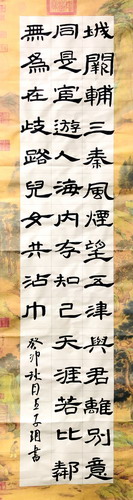 城闕輔三秦風煙望五津與君離別意
同是宦遊人海内存知己天涯若比鄰
無為在歧路兒女共沾巾
癸卯秋月書